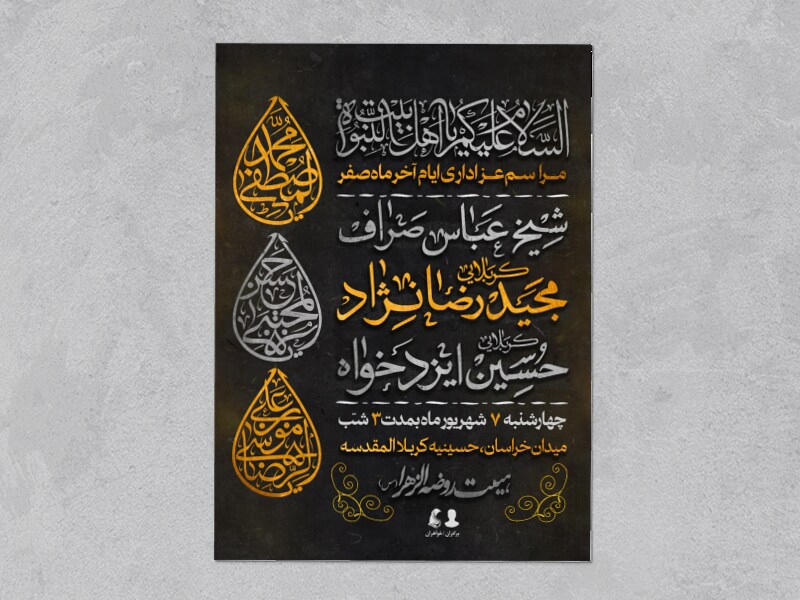 السَّلامُ علیکم یا اهل بیت النبوة
مراسم عزاداری ایام آخر ماه صفر
شیخ عباس صراف
کربلایی
مجید رضا نژاد
کربلایی
حسین ایزدخواه
چهارشنبه ۷ شهریور ماه بمدت ۳ شب
میدان خراسان، حسینیه کربلا المقدسه
هیئت روضه الزهرا (س)
برادران | خواهران
محمد المصطفی
حسن المجتبی
علی بن موسی الرضا